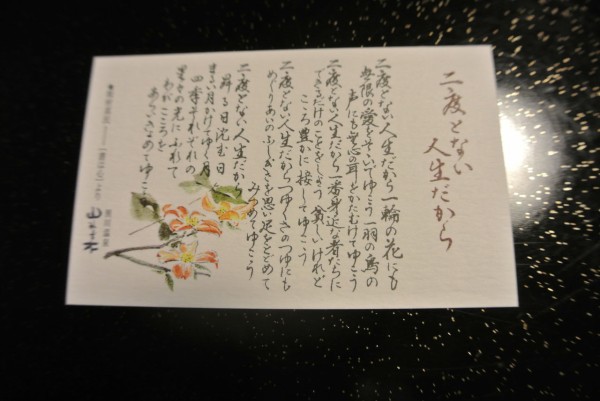 二度とない
人生だから
二度とない人生だから一輪の花にも
無限の愛をそそいでゆこう一羽の鳥の
声にも無心の耳をかたむけてゆこう
二度とない人生だから一番身近な者たちに
できるだけのことをしよう 貧しいけれど
こころ豊かに接してゆこう
二度とない人生だからつゆくさのつゆにも
めぐりあいのふしぎを思い足をとどめて
みつめてゆこう
二度とない人生だから
昇る日沈む日
まるい月かけてゆく月
四季それぞれの
星々の光にふれて
わがこころを
あらいきよめてゆこ
坂村真民
より